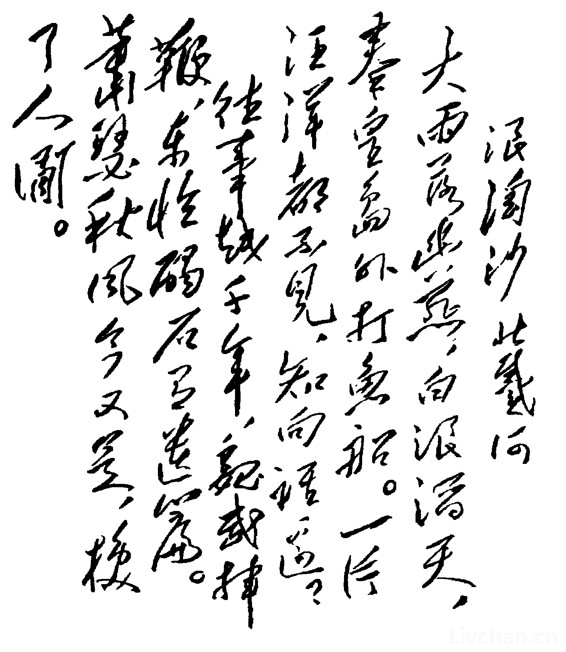 浪淘沙 北戴河
大雨落幽燕,白浪滔天,
秦皇島外打魚船。一片
汪洋都不見,知向誰邊?
往事越千年,魏武揮
鞭,东臨碣石有遺篇。
蕭瑟秋風今又是,換
了人間。
Livchan.cn